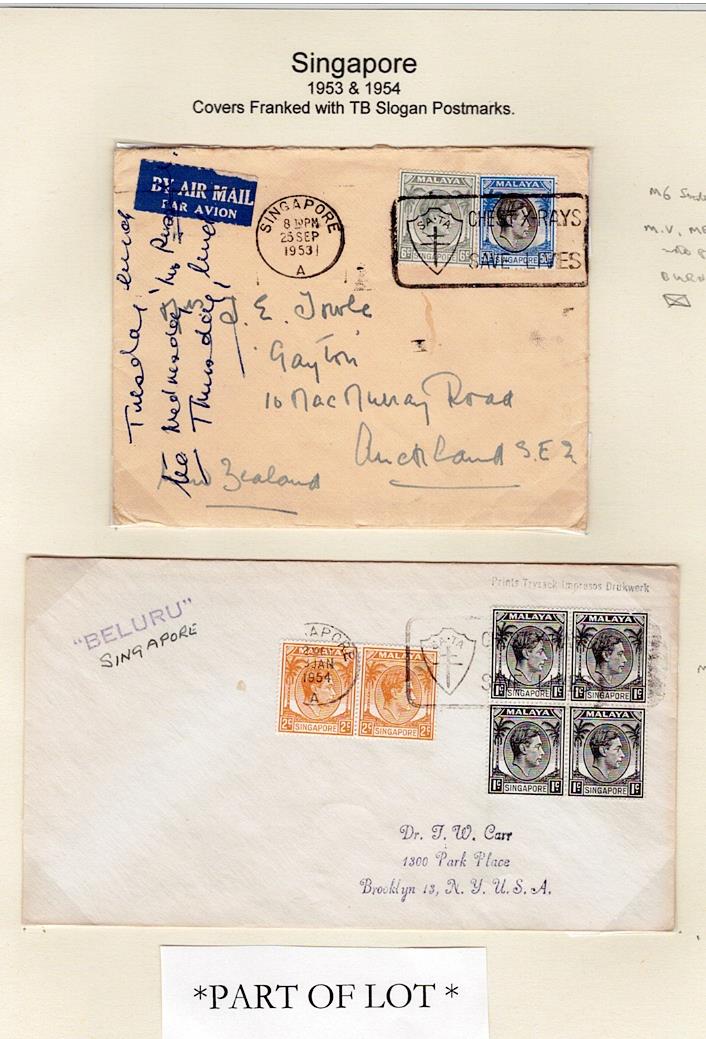 Singapore
1953 & 1954
Covers Franked with TB Slogan Postmarks.
BY AIR MAIL
PAR AVION
SINGAPORE
25 SEP
1953
A
MALAYA
SINGAPORE
MALAYA
SINGAPORE
SATA
CHEST X-RAYS
SAVE LIVES
Tuesday lunch
Wednesday
Thursday, lunch
J. E. Towle
'Gayton'
10 MacMurray Road
Auckland S.E 2
New Zealand
M6
M.V.
Prints Tryzack Impresos Drukwerk
"BELURU"
SINGAPORE
JAN
1954
A
MALAYA
SINGAPORE
2c
2c
MALAYA
SINGAPORE
2c
SATA
MALAYA
1c SINGAPORE 1c
MALAYA
1c SINGAPORE 1c
MALAYA
1c SINGAPORE 1c
MALAYA
1c SINGAPORE 1c
Dr. T. W. Carr
1300 Park Place
Brooklyn 13, N. Y. U. S. A.
*PART OF LOT *